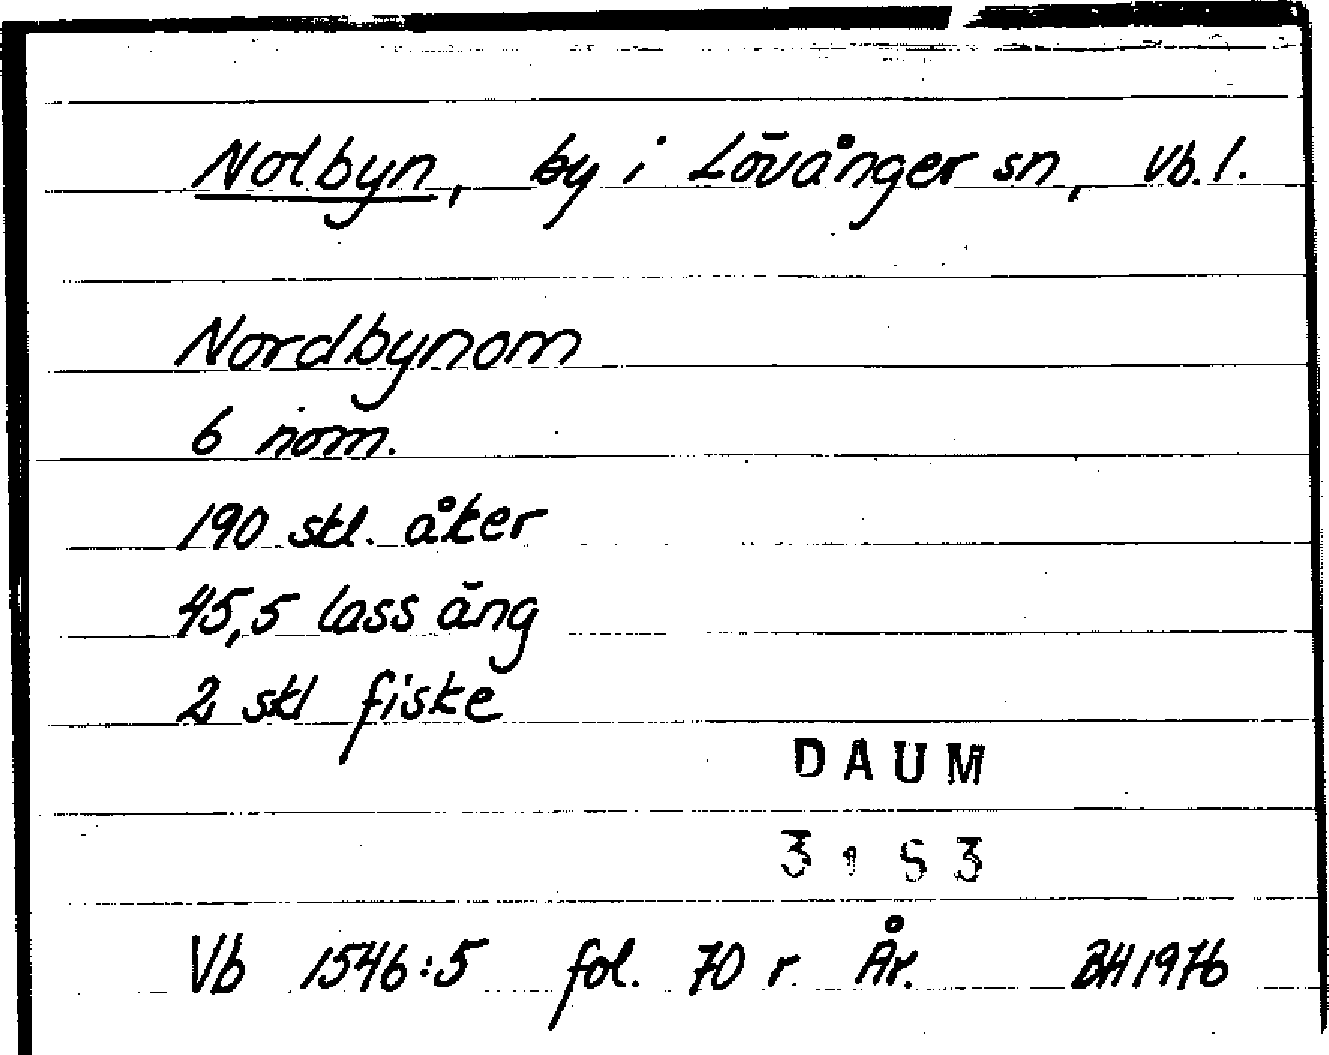 Nolbyn, by i Lövånger sn, Vb. l.
Nordbynom
6 nom.
190 skl. åker
45,5 lass äng
2 skl fiske
DAUM
Vb 1546:5 fol. 70 r. År. BH 1976